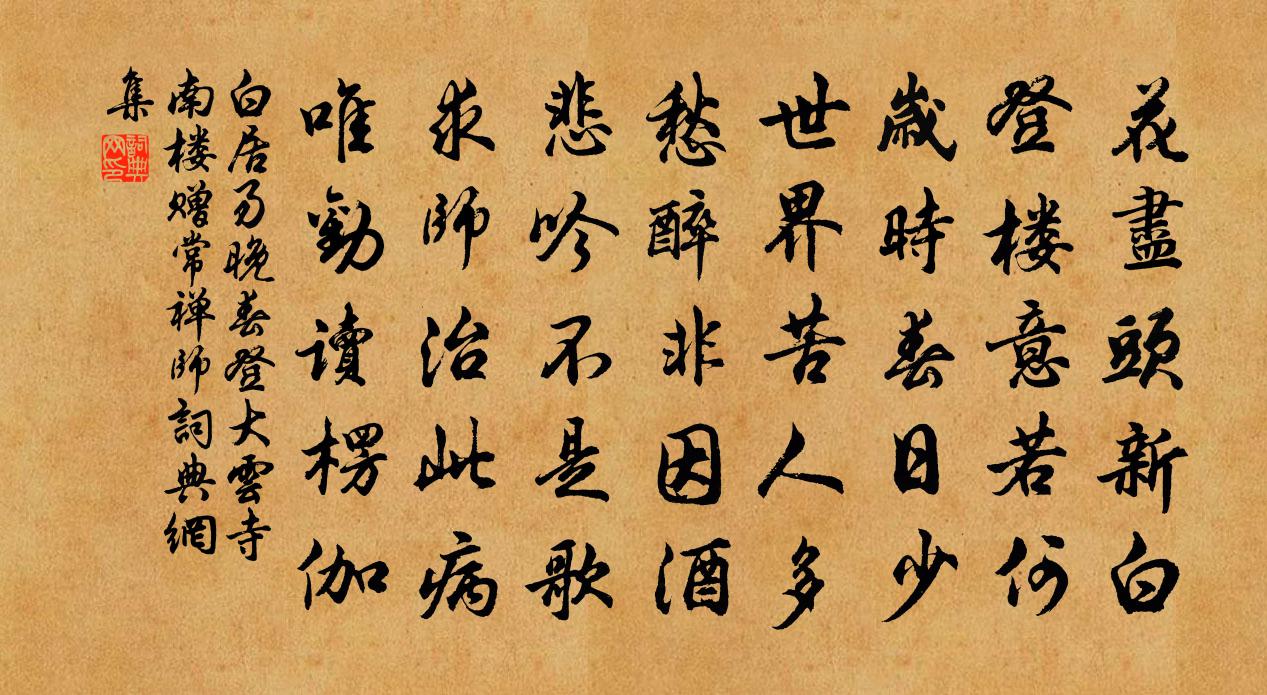 花盡頭新白
登楼意若何
歲時春日少
世界苦人多
愁醉非因酒
悲吟不是歌
求師治此病
唯勸讀楞伽
白居易晚春登大雲寺
南楼赠常禅師詞典網
集
詞典網印